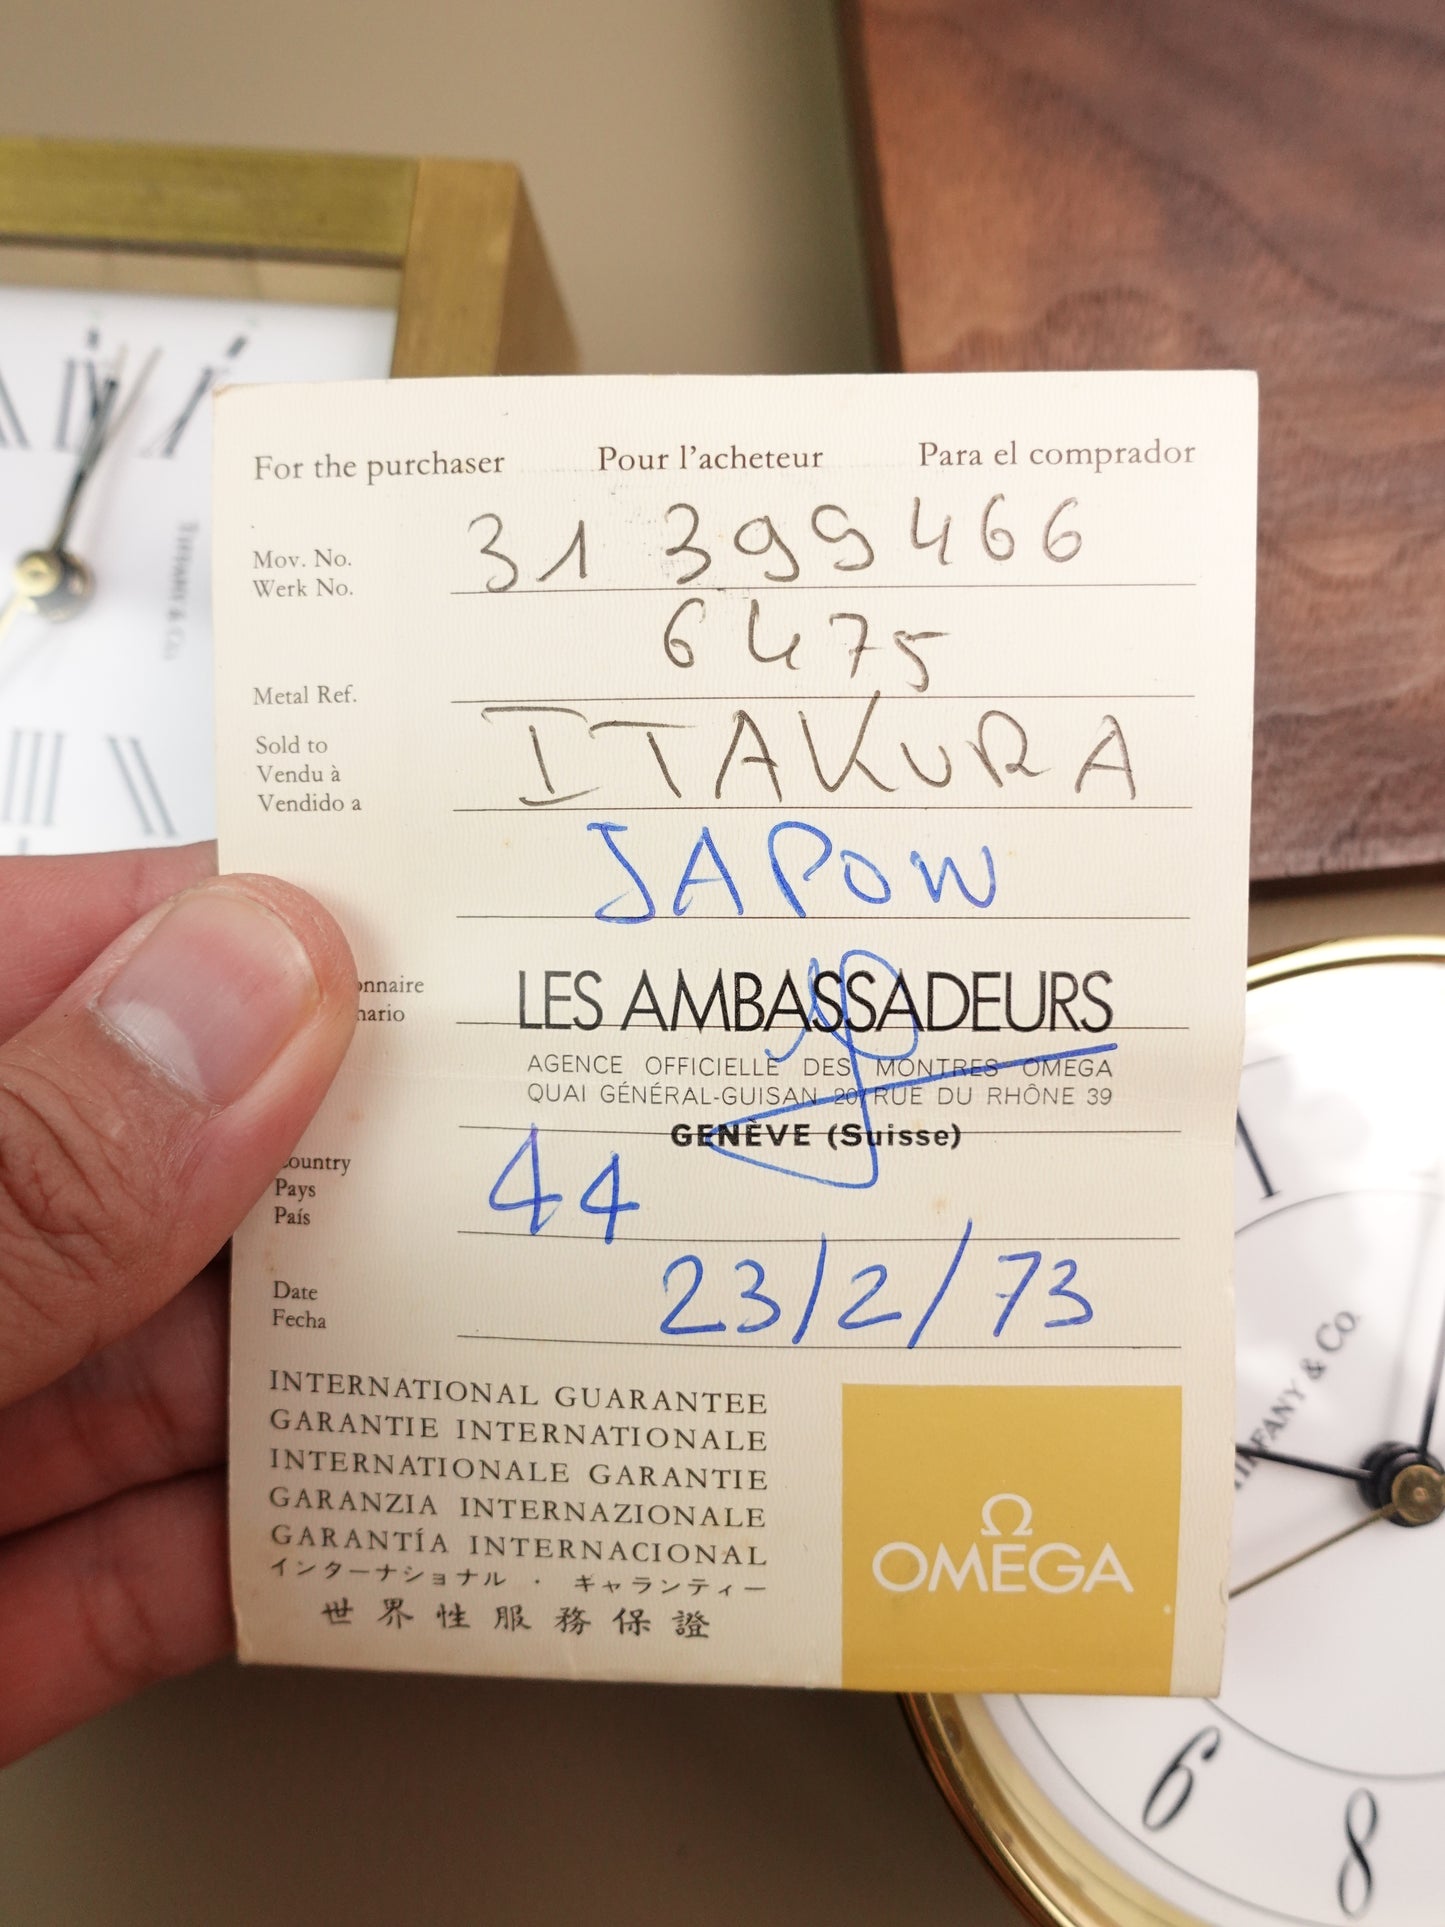 For the purchaser Pour l'acheteur Para el comprador
Mov. No. 31 399 466
Werk No.
6475
Metal Ref.
Sold to ITAKURA
Vendu à
Vendido a
JAPON
onnaire LES AMBASSADEURS
nario
AGENCE OFFICIELLE DES MONTRES OMEGA
QUAI GÉNÉRAL-GUISAN 20/RUE DU RHÔNE 39
GENÈVE (Suisse)
Country 44
Pays
País
Date 23/2/73
Fecha
INTERNATIONAL GUARANTEE
GARANTIE INTERNATIONALE
INTERNATIONALE GARANTIE
GARANZIA INTERNAZIONALE
GARANTÍA INTERNACIONAL
インターナショナル · ギャランティー
世界性服務保證
Ω
OMEGA
TIFFANY & CO.
TIFFANY & Co.
I
6
8